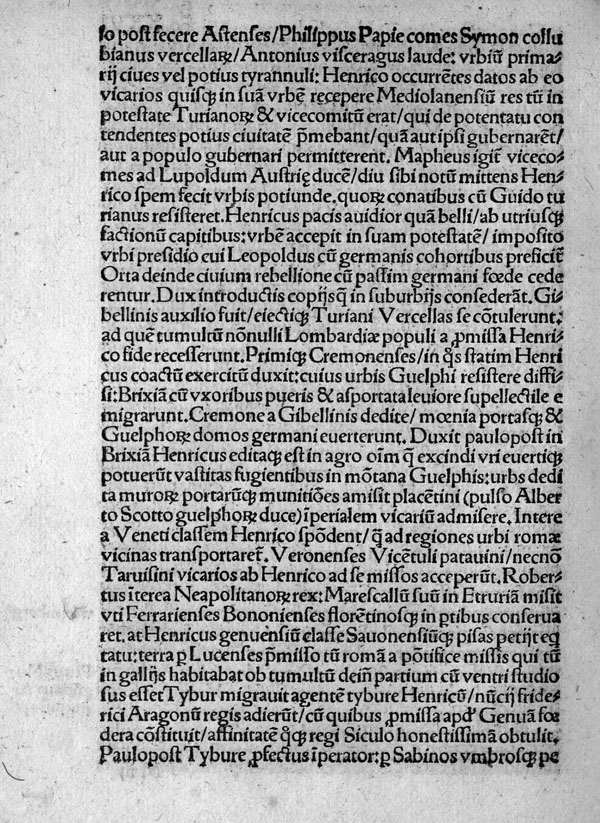 so post fecere Astenses/Philippus Papie comes Symon collu
bianus vercellaꝝ/Antonius visceragus laude: vrbiū prima⸗
rij ciues vel potius tyrannuli: Henrico occurrētes datos ab eo
vicarios quisqꝫ in suā vrbē recepere Mediolanensiū res tū in
potestate Turianoꝝ & vicecomitū erat/qui de potentatu con
tendentes potius ciuitatē p̄mebant/quā aut ipsi gubernarēt/
aut a populo gubernari permitterent. Mapheus igit᷑ viceco⸗
mes ad Lupoldum Austrię ducē/diu sibi notū mittens Hen⸗
rico spem fecit vrbis potiunde. quoꝝ conatibus cū Guido tu
rianus resisteret. Henricus pacis auidior quā belli/ab utriusqꝫ
factionū capitibus: vrbē accepit in suam potestatē/imposito
vrbi presidio cui Leopoldus cū germanis cohortibus preficit᷑
Orta deinde ciuium rebellione cū passim germani fœde cede
rentur. Dux introductis copijs q̄ in suburbijs consederāt. Gi⸗
bellinis auxilio fuit/eiectiqꝫ Turiani Vercellas se cōtulerunt:
ad quē tumultū nōnulli Lombardiæ populi a ꝓmissa Henri⸗
co fide recesserunt. Primiqꝫ Cremonenses/in q̊s statim Henri
cus coactū exercitū duxit: cuius urbis Guelphi resistere diffi⸗
si: Brixiā cū vxoribus pueris & asportata leuiore supellectile e
migrarunt. Cremone a Gibellinis dedite/mœnia portasqꝫ &
Guelphoꝝ domos germani euerterunt. Duxit paulopost in
Brixiā Henricus editaqꝫ est in agro oīm q̄ excindi vri euertiqꝫ
potuerūt vastitas fugientibus in mōtana Guelphis: urbs dedi
ta muroꝝ portarūqꝫ munitiōes amisit placētini (pulso Alber
to Scotto guelphoꝝ duce) īperialem vicariū admisere. Intere
a Veneti classem Henrico spōdent/q̄ ad regiones urbi romæ
vicinas transportaret᷑. Veronenses Vicētuli patauini/necnō
Taruisini vicarios ab Henrico ad se missos acceperūt. Rober⸗
tus īterea Neapolitanoꝝ rex: Marescallū suū in Etruriā misit
vti Ferrarienses Bononienses florētinosqꝫ in ꝑtibus conserua
ret. at Henricus genuēsiū classe Sauonensiūqꝫ pisas petijt eq̄
tatu: terra ꝑ Lucenses p̄misso tū romā a pōtifice missis qui tū
in gallijs habitabat ob tumultū deīn partium cū ventri studio
sus esset Tybur migrauit agentē tybure Henricū/nūcij fride⸗
rici Aragonū regis adierūt/cū quibus ꝓmissa apd᷒ Genuā fœ
dera cōstituit/affinitatē q̊qꝫ regi Siculo honestissimā obtulit.
Paulopost Tybure ꝓfectus īperator: ꝑ Sabinos vmbrosqꝫ pe